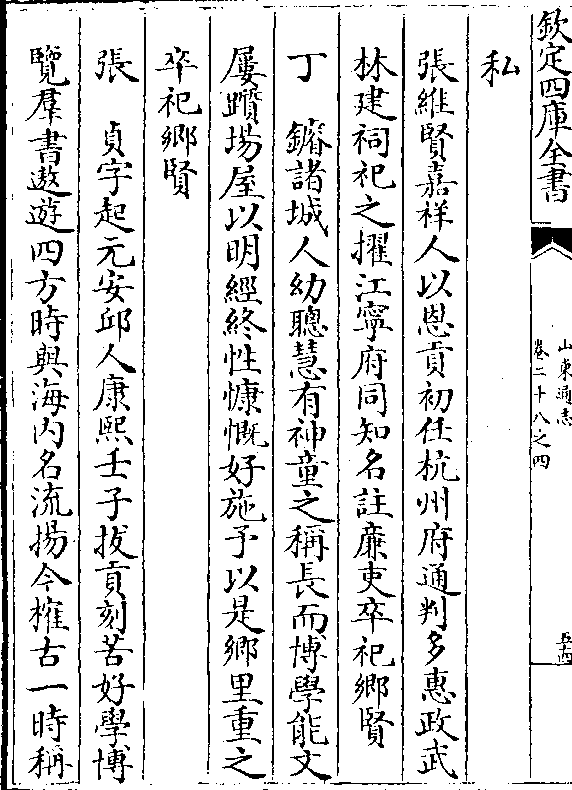 欽定四庫全書
山東通志
卷二十八之四
五十四
私
張維賢嘉祥人以恩貢初任杭州府通判多惠政武
林建祠祀之擢江寧府同知名註廉吏卒祀鄉賢
丁 鏥諸城人幼聰慧有神童之稱長而博學能文
屢躓場屋以明經終性慷慨好施予以是鄉里重之
卒祀鄉賢
張 貞字起元安邱人康熙壬子拔貢刻苦好學博
覽羣書遨遊四方時與海内名流揚今搉古一時稱